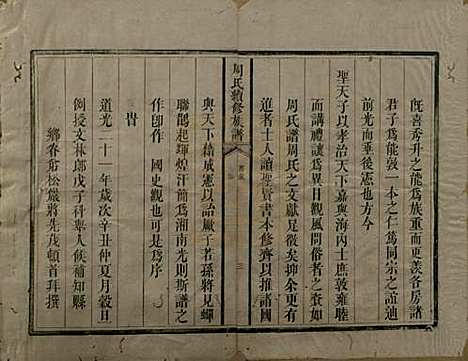 既喜秀升之能爲族重而更羨各房諸
君子爲能敦一本之仁篤同宗之誼迪
前光而垂後憲也方今
聖天子以孝治天下嘉與海內士庶敦雍睦
而講禮讓爲異日觀風問俗者之資如
周氏譜周氏之文獻足徵矣抑余更有
進者士人讀聖賢書本修齊以推諸國
周氏續修族譜
與天下積成憲以詒厥子若孫將見蟬
聯鵲起輝煌汗簡爲湖南光則斯譜之
作卽作 國史觀也可爲序
旹
道光二十一年歲次辛丑仲夏月穀旦
例授文林郎戊子科舉人候補知縣
鄉眷
松嚴蔣先茂頓首拜撰